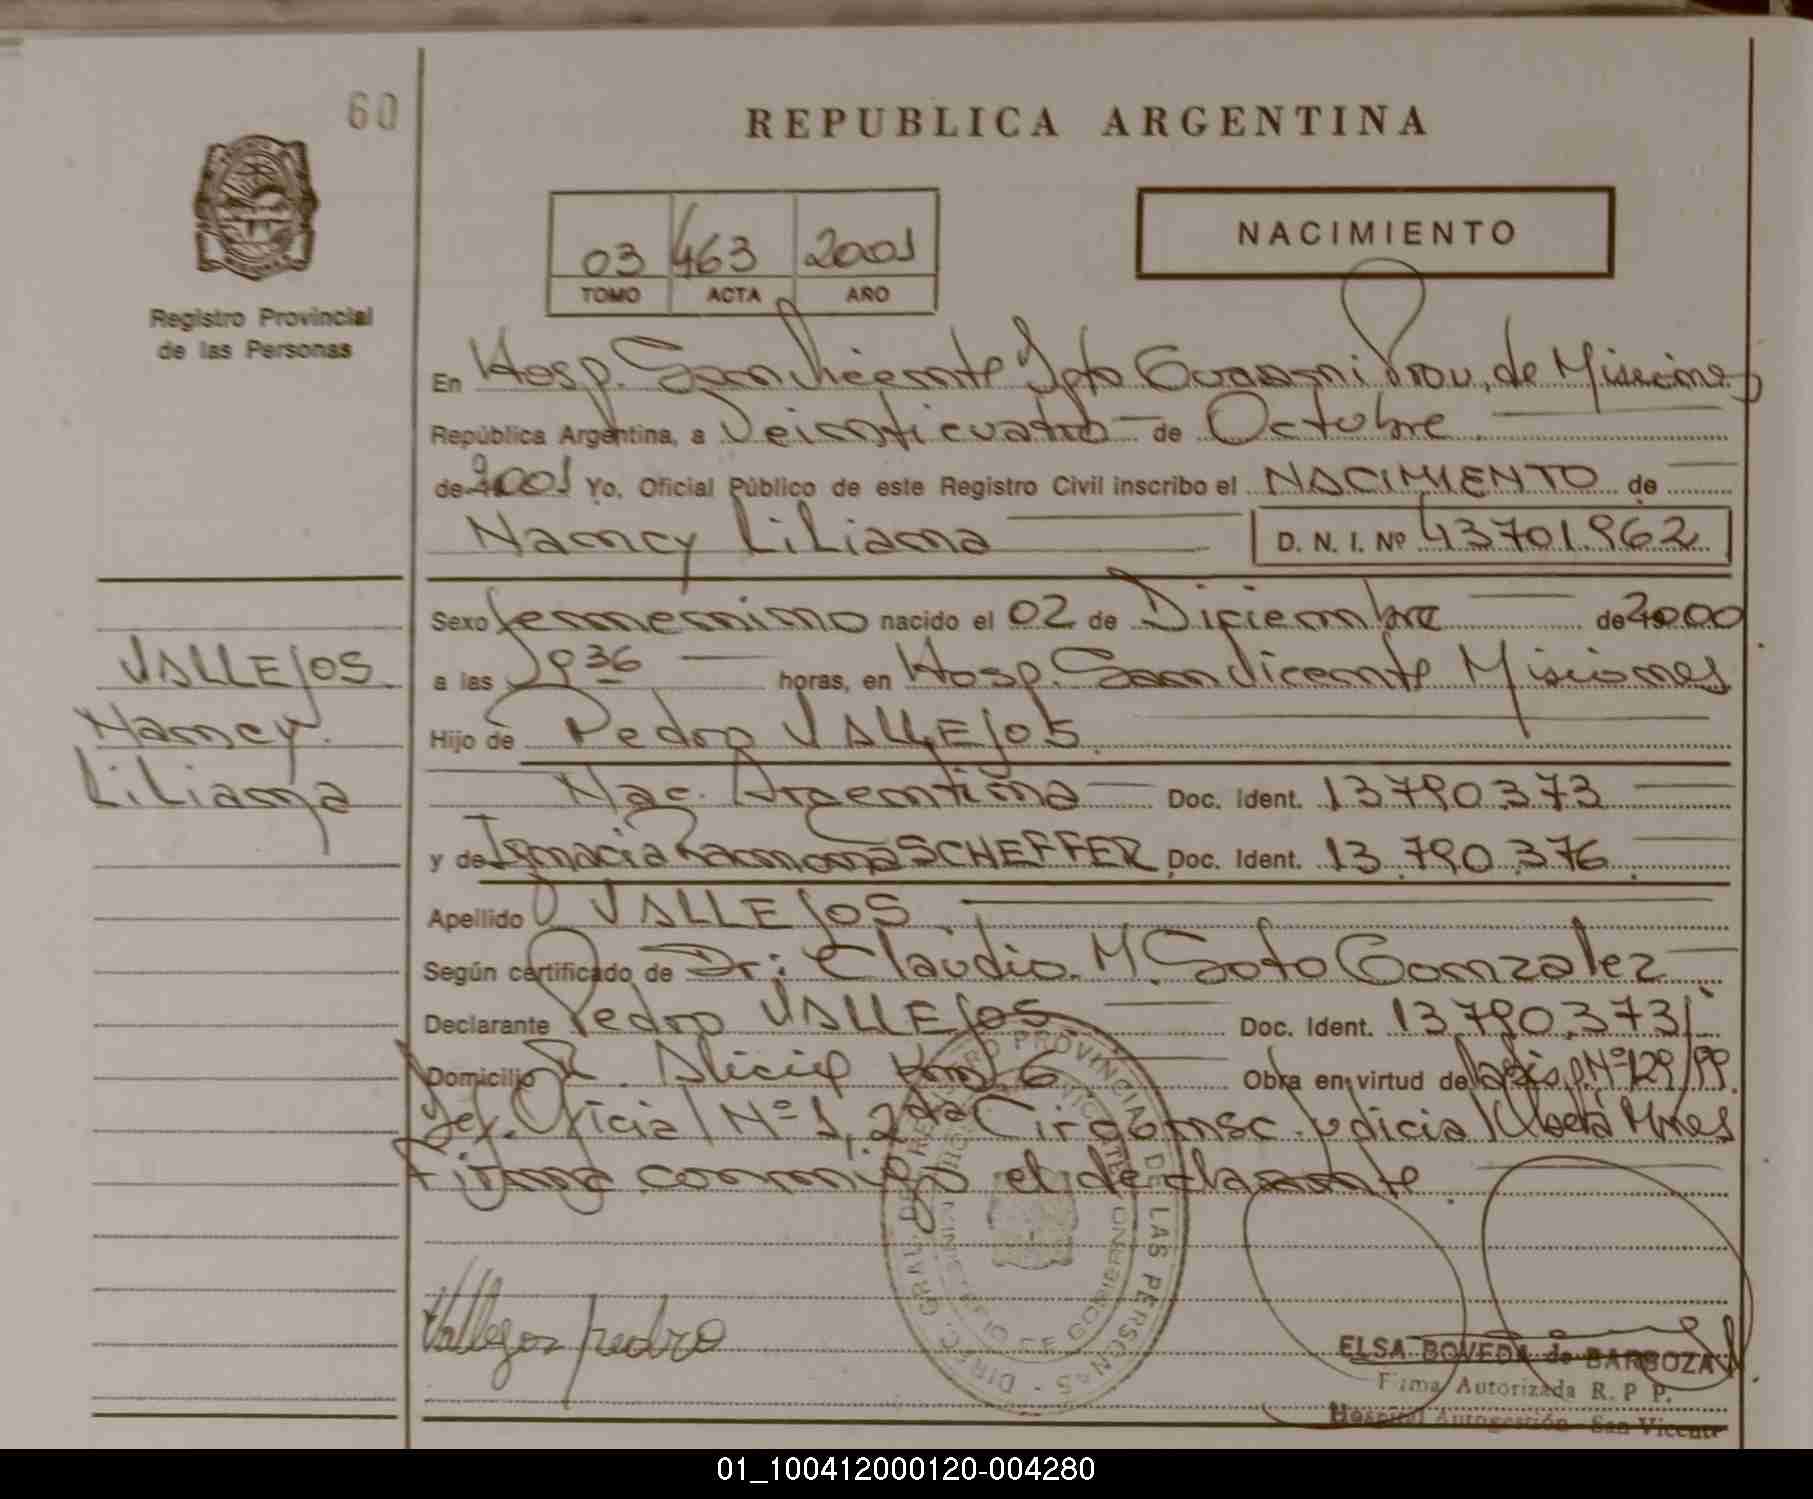 60
REPUBLICA ARGENTINA
NACIMIENTO
03 463 2001
TOMO ACTA AÑO
Registro Provincial
de las Personas
En Hosp. San Vicente Dpto Guarani Prov. de Misiones
República Argentina, a Veinticuatro de Octubre
de 2001 Yo, Oficial Público de este Registro Civil inscribo el NACIMIENTO de
Nancy Liliana D. N. I. Nº 43701962
Sexo femenino nacido el 02 de Diciembre de 2000
VALLEJOS
Nancy
Liliana
a las 1936 horas, en Hosp. San Vicente Misiones
Hijo de Pedro VALLEJOS
Nac. Argentina Doc. Ident. 13790373
y de Ignacia Ramona SCHEFFER Doc. Ident. 13.790.376
Apellido VALLEJOS
Según certificado de Dr: Claudio M. Soto Gonzalez
Declarante Pedro VALLEJOS Doc. Ident. 13790373
Domicilio Alicia Km 6 Obra en virtud de Nº 129/99
Def. Oficial Nº 1, 2da Circunsc. Judicial Oberá Mnes
Firma conmigo el declarante
Vallejos pedro
DIREC. GRAL. DEL REGISTRO PROVINCIAL DE LAS PERSONAS
DE GOBIERNO
ELSA BOVEDA de BARBOZA
Firma Autorizada R. P. P.
Hospital Autogestión San Vicente
01_100412000120-004280